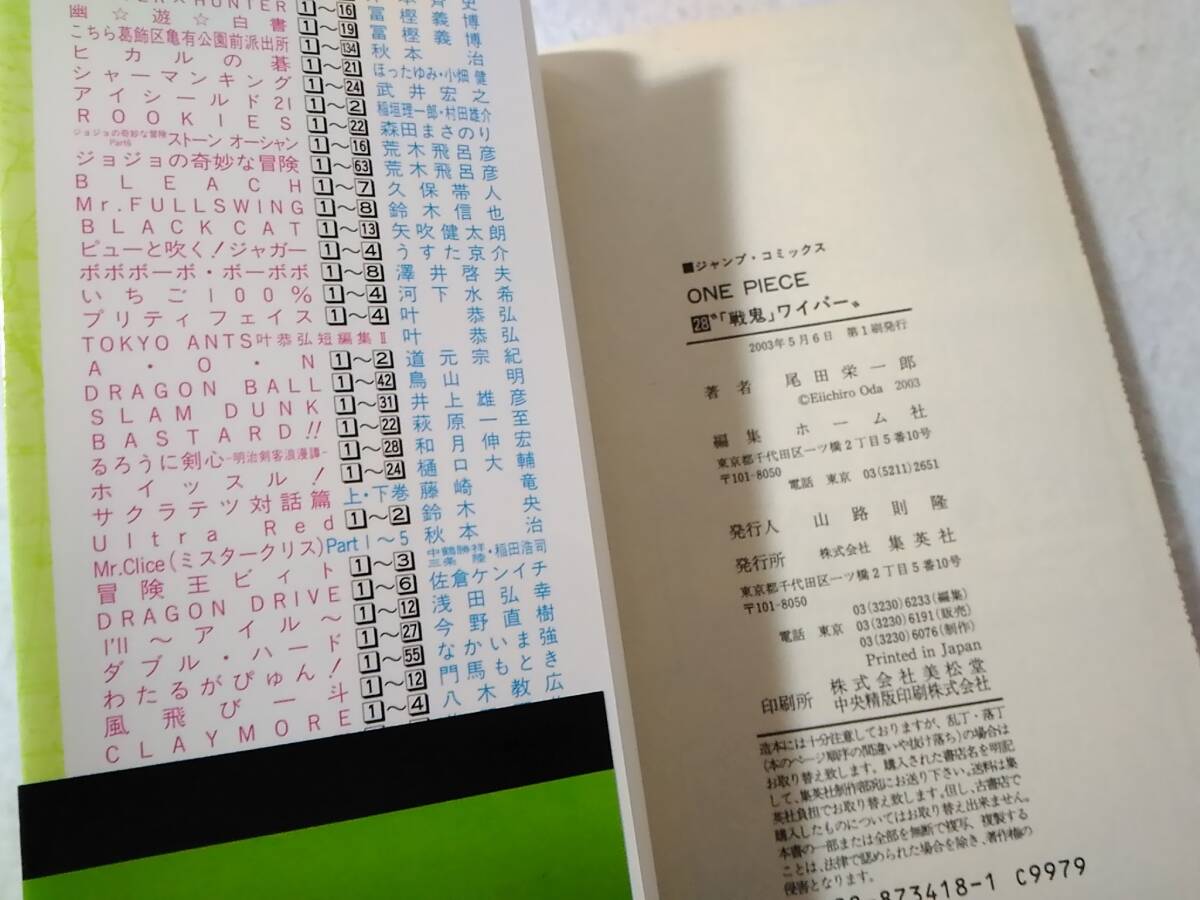 ×HUNTER 1～16 冨樫義博
幽☆遊☆白書 1～19 冨樫義博
こちら葛飾区亀有公園前派出所 1～134 秋本治
ヒカルの碁 1～21 ほったゆみ・小畑健
シャーマンキング 1～24 武井宏之
アイシールド21 1～2 稲垣理一郎・村田雄介
ROOKIES 1～22 森田まさのり
ジョジョの奇妙な冒険 Part6 ストーン オーシャン 1～16 荒木飛呂彦
ジョジョの奇妙な冒険 1～63 荒木飛呂彦
BLEACH 1～7 久保帯人
Mr.FULLSWING 1～8 鈴木信也
BLACK CAT 1～13 矢吹健太朗
ピューと吹く!ジャガー 1～4 うすた京介
ボボボーボ・ボーボボ 1～8 澤井啓夫
いちご100% 1～4 河下水希
プリティフェイス 1～4 叶恭弘
TOKYO ANTS 叶恭弘短編集Ⅱ 叶恭弘
A・O・N 1～2 道元宗紀
DRAGON BALL 1～42 鳥山明
SLAM DUNK 1～31 井上雄彦
BASTARD!! 1～22 萩原一至
るろうに剣心-明治剣客浪漫譚- 1～28 和月伸宏
ホイッスル! 1～24 樋口大輔
サクラテツ対話篇 上・下巻 藤崎竜
Ultra Red 1～2 鈴木央
Mr.Clice(ミスタークリス) Part1～5 秋本治
冒険王ビィト 1～3 三条陸・稲田浩司
DRAGON DRIVE 1～6 佐倉ケンイチ
I'll～アイル～ 1～12 浅田弘幸
ダブル・ハード 1～27 今野直樹
わたるがぴゅん! 1～55 なかいま強
風飛び一斗 1～12 門馬もとき
CLAYMORE 1～4 八木教広
■ジャンプ・コミックス
ONE PIECE
28〝「戦鬼」ワイパー〟
2003年5月6日 第1刷発行
著者 尾田栄一郎
©Eiichiro Oda 2003
編集 ホーム社
東京都千代田区一ツ橋2丁目5番10号
〒101-8050
電話 東京 03(5211)2651
発行人 山路則隆
発行所 株式会社 集英社
東京都千代田区一ツ橋2丁目5番10号
〒101-8050
03(3230)6233(編集)
電話 東京 03(3230)6191(販売)
03(3230)6076(制作)
Printed in Japan
印刷所 株式会社美松堂
中央精版印刷株式会社
造本には十分注意しておりますが、乱丁・落丁
(本のページ順序の間違いや抜け落ち)の場合は
お取り替え致します。購入された書店名を明記
して、集英社制作部宛にお送り下さい。送料は集
英社負担でお取り替え致します。但し、古書店で
購入したものについてはお取り替え出来ません。
本書の一部または全部を無断で複写、複製する
ことは、法律で認められた場合を除き、著作権の
侵害となります。
-873418-1 C9979